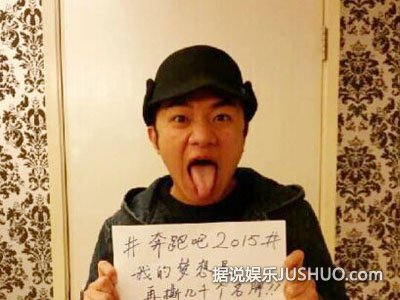 #奔跑吧2015#
我的梦想是
再撕几十个名牌!!!
据说娱乐JUSHUO.COM